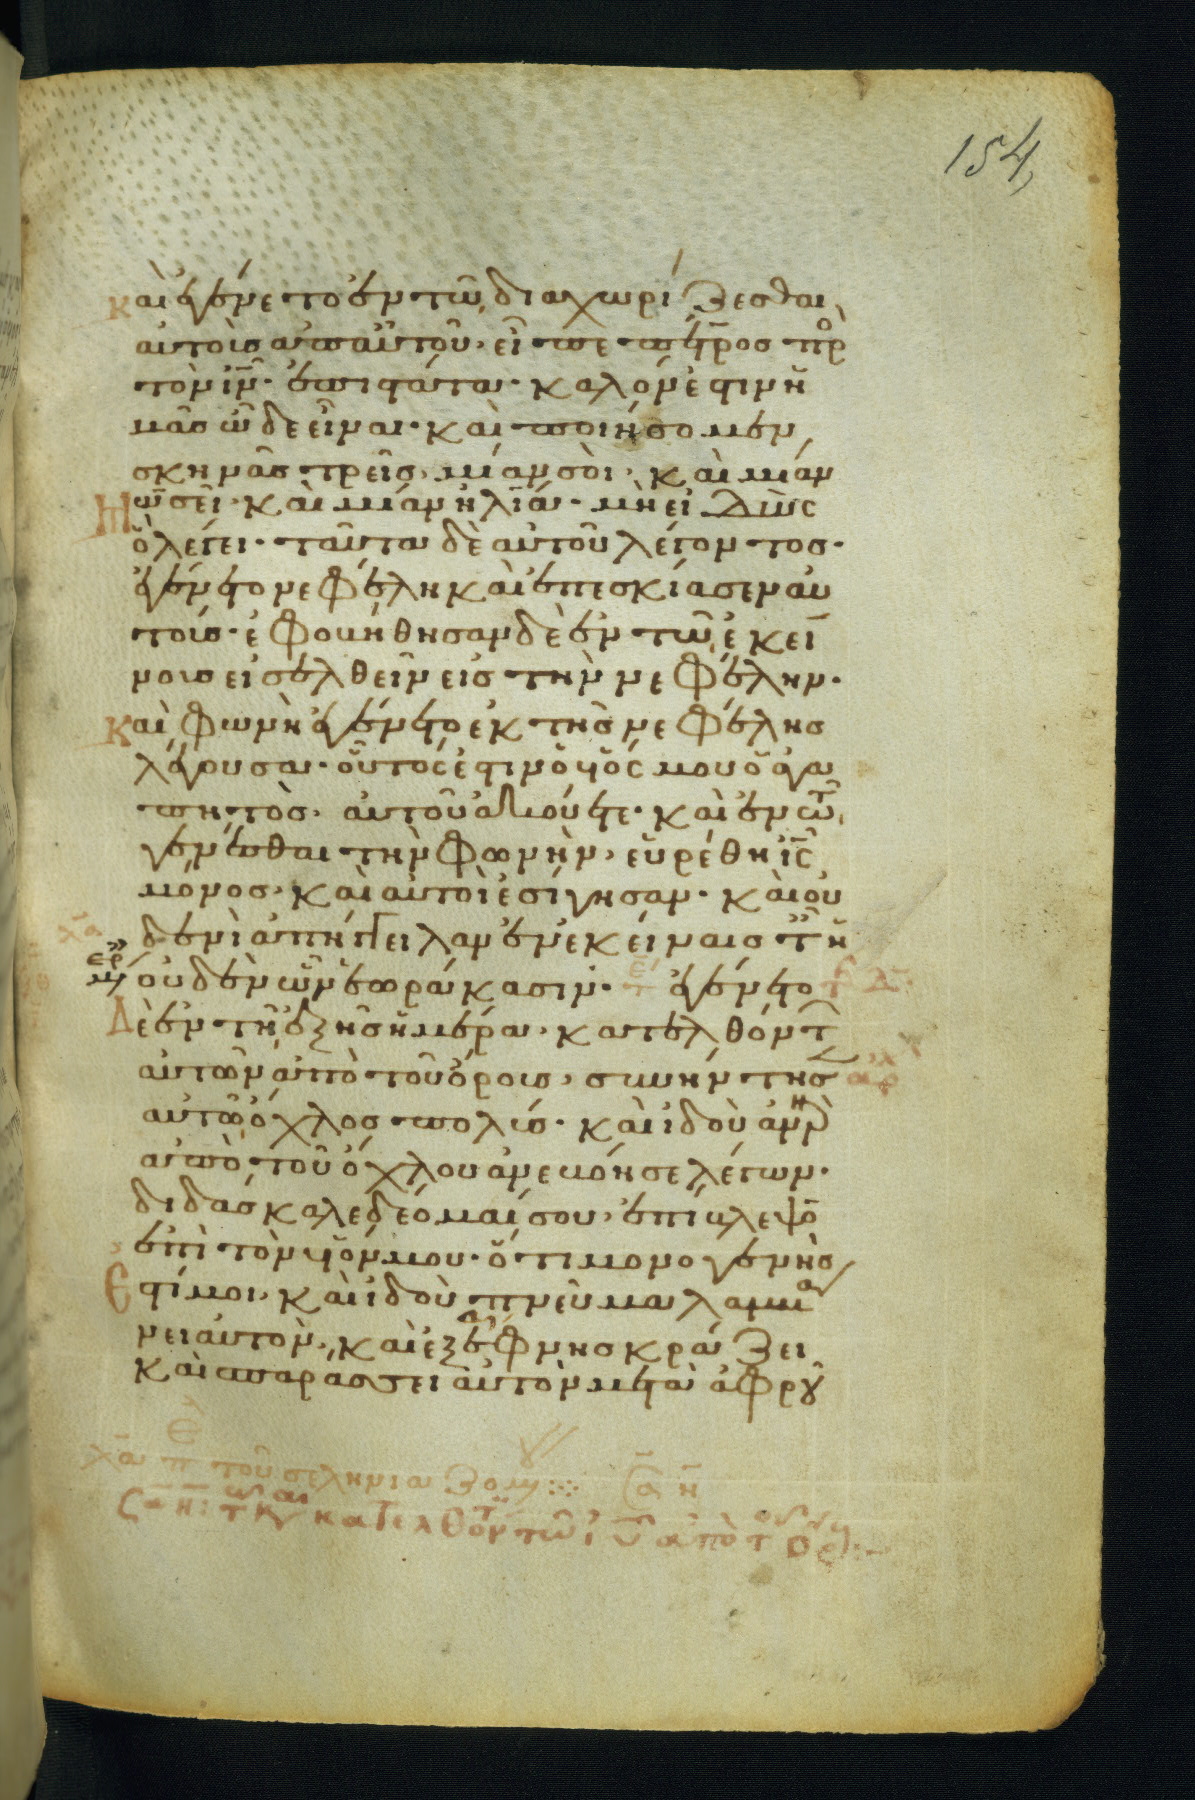 154
καὶ ἐγένετο ἐν τῶ διαχωρίζεσθαι
αὐτοὺσ ἀπ αὐτοῦ· εἶπε πέτροσ πρὸ
τὸν ιν̅· ἐπιστάτα· καλόν ἐστιν ἡ
μᾶσ ὧδε εἶναι· καὶ ποιήσομεν
σκηνὰσ τρεῖσ· μίαν σοὶ· καὶ μίαν
μωσεῖ· καὶ μίαν ἠλία· μὴ εἰδὼς
ὃ λέγει· ταῦτα δὲ αὐτοῦ λέγοντοσ·
ἐγένετο νεφέλη καὶ ἐπεσκίασεν αὐ
τούσ· ἐφοβήθησαν δὲ ἐν τῶ ἐκεί
νουσ εἰσελθεῖν εἰσ τὴν νεφέλην·
καὶ φωνὴ ἐγένετο ἐκ τῆσ νεφέλησ
λέγουσα· οὗτός ἐστιν ὁ υἱός μου ὁ ἀγα
πητὸσ· αὐτοῦ ἀκούετε· καὶ ἐν τῶ
γενέσθαι τὴν φωνὴν· εὑρέθη ις̅
μόνοσ· καὶ αὐτοὶ ἐσίγησαν· καὶ οὐ
δενὶ ἀπήγγειλαν ἐν ἐκείναισ τ ἡ
μέρ οὐδὲν ὧν ἑωράκασιν· ἐγένετο
Δὲ ἐν τῆ ἑξῆσ ἡμέρα· κατελθόντ
αὐτῶν ἀπὸ τοῦ ὄρουσ· συνήντησ
αὐτῶ ὄχλοσ πολύσ· καὶ ἰδοὺ ἀνὴρ
ἀπὸ τοῦ ὄχλου ἀνεβόησε λέγων·
διδάσκαλε δέομαί σου· ἐπίβλεψο
ἐπὶ τὸν υἱόν μου· ὅτι μονογενὴσ
ἐστί μοι· καὶ ἰδοὺ πνεῦμα λαμβά
νει αὐτὸν· καὶ ἐξέφνησ κράζει
καὶ σπαράσσει αὐτὸν μετὰ ἀφροῦ